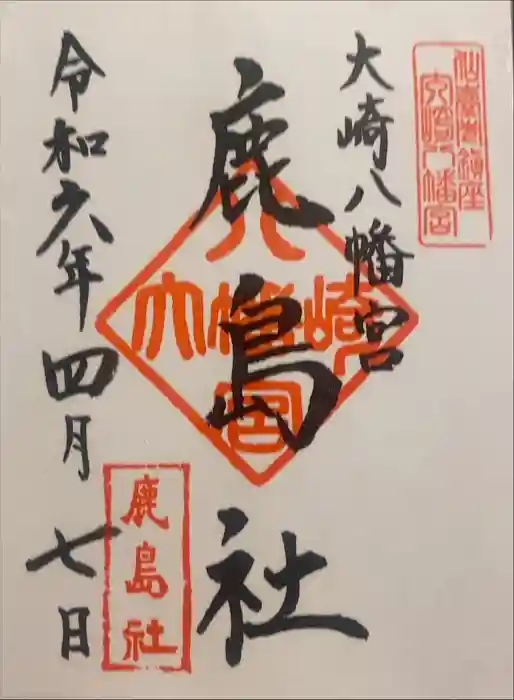 仙臺市鎮座
大崎八幡宮
大崎八幡宮
鹿島社
大崎八幡宮
鹿島社
令和六年四月七日